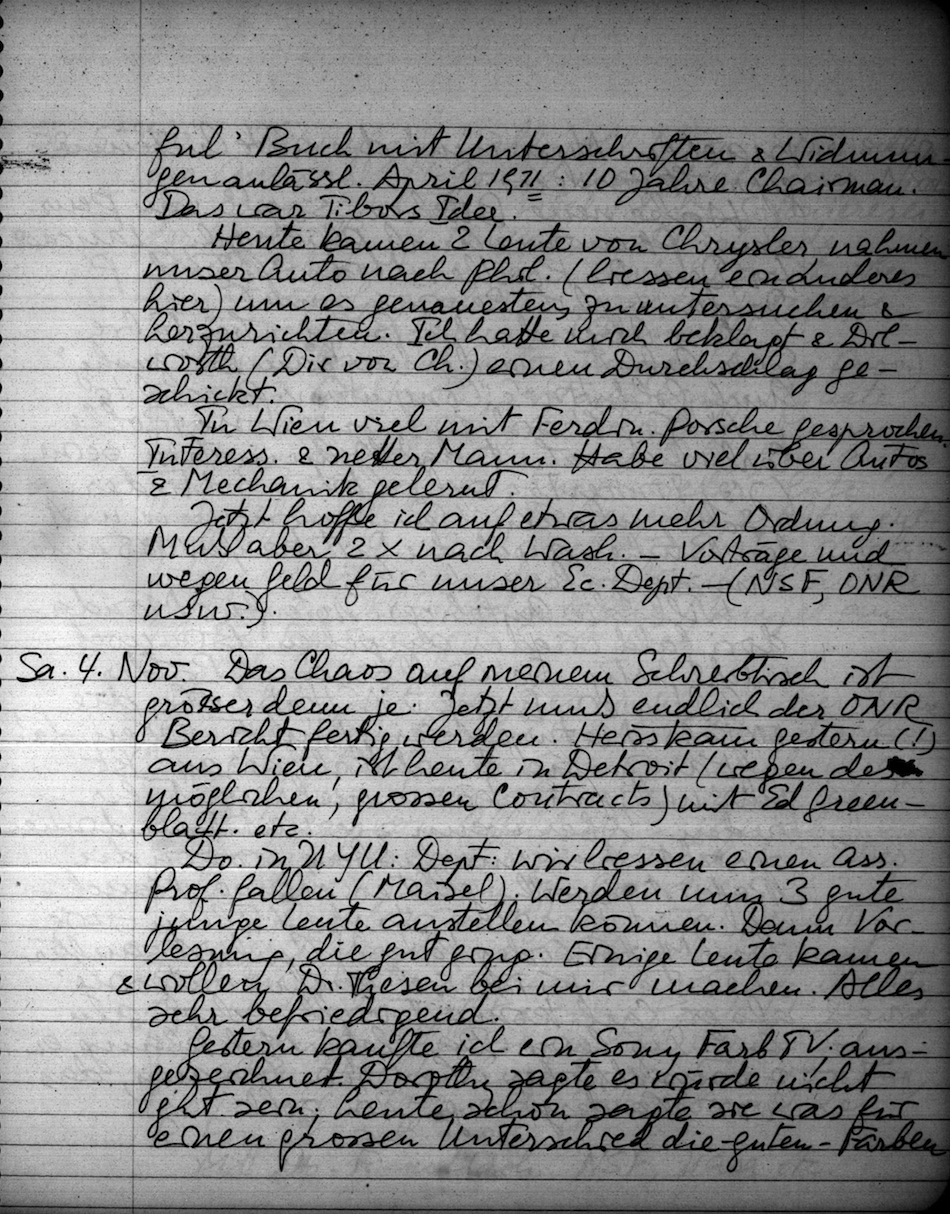 ful' Buch mit Unterschriften & Widmun
gen anlässl. April 1971 : 10 Jahre Chairman.
Das war Tibors Idee.
Heute kamen 2 Leute von Chrysler nahmen
unser Auto nach Phil. (liessen ein anderes
hier) um es genauestens zu untersuchen &
herzurichten. Ich hatte mich beklagt & Dil-
worth (Dir von Ch.) einen Durchschlag ge-
schickt.
In Wien viel mit Ferdin. Porsche gesprochen.
Interess. & netter Mann. Habe viel über Autos
& Mechanik gelernt.
Jetzt hoffe ich auf etwas mehr Ordnung.
Muss aber 2 x nach Wash. – Vorträge und
wegen Geld für unser Ec. Dept. – (NSF, ONR
usw.).
Sa. 4. Nov. Das Chaos auf meinem Schreibtisch ist
grösser denn je. Jetzt muss endlich der ONR
Bericht fertig werden. Heiss kam gestern (!)
aus Wien, ist heute in Detroit (wegen des
möglichen, grossen Contracts) mit Ed Green-
blatt. etc.
Do. in NYU: Dept: wir liessen einen Ass.
Prof. fallen (Maisel). Werden nun 3 gute
junge Leute anstellen können. Dann Vor-
lesung, die gut ging. Einige Leute kamen
& wollen Dr. Thesen bei mir machen. Alles
sehr befriedigend.
Gestern kaufte ich ein Sony Farb TV. aus-
gezeichnet. Dorothy sagte es würde nicht
gut sein; heute schon sagte sie was für
einen grossen Unterschied die guten – Farben